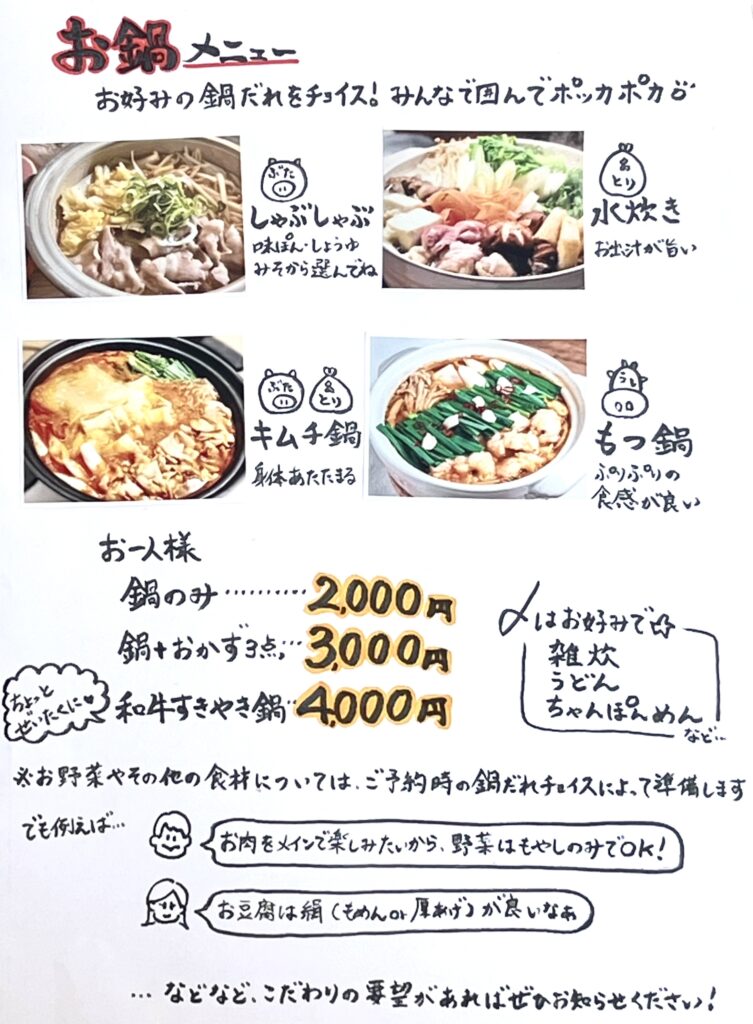 お鍋メニュー
お好みの鍋だれをチョイス! みんなで囲んでポッカポカ
ぶた
しゃぶしゃぶ
味ぽん・しょうゆ
みそから選んでね
とり
水炊き
お出汁が旨い
ぶた
とり
キムチ鍋
身体あたたまる
うし
もつ鍋
ぷりぷりの
食感が良い
お一人様
鍋のみ………… 2,000円
鍋+おかず3点… 3,000円
ちょっと
ぜいたくに♥
和牛すきやき鍋… 4,000円
〆はお好みで☆
雑炊
うどん
ちゃんぽんめん
など…
※お野菜やその他の食材については、ご予約時の鍋だれチョイスによって準備します
でも例えば…
お肉をメインで楽しみたいから、野菜はもやしのみでOK!
お豆腐は絹(もめんor厚あげ)が良いなぁ
… などなど、こだわりの要望があればぜひお知らせください!